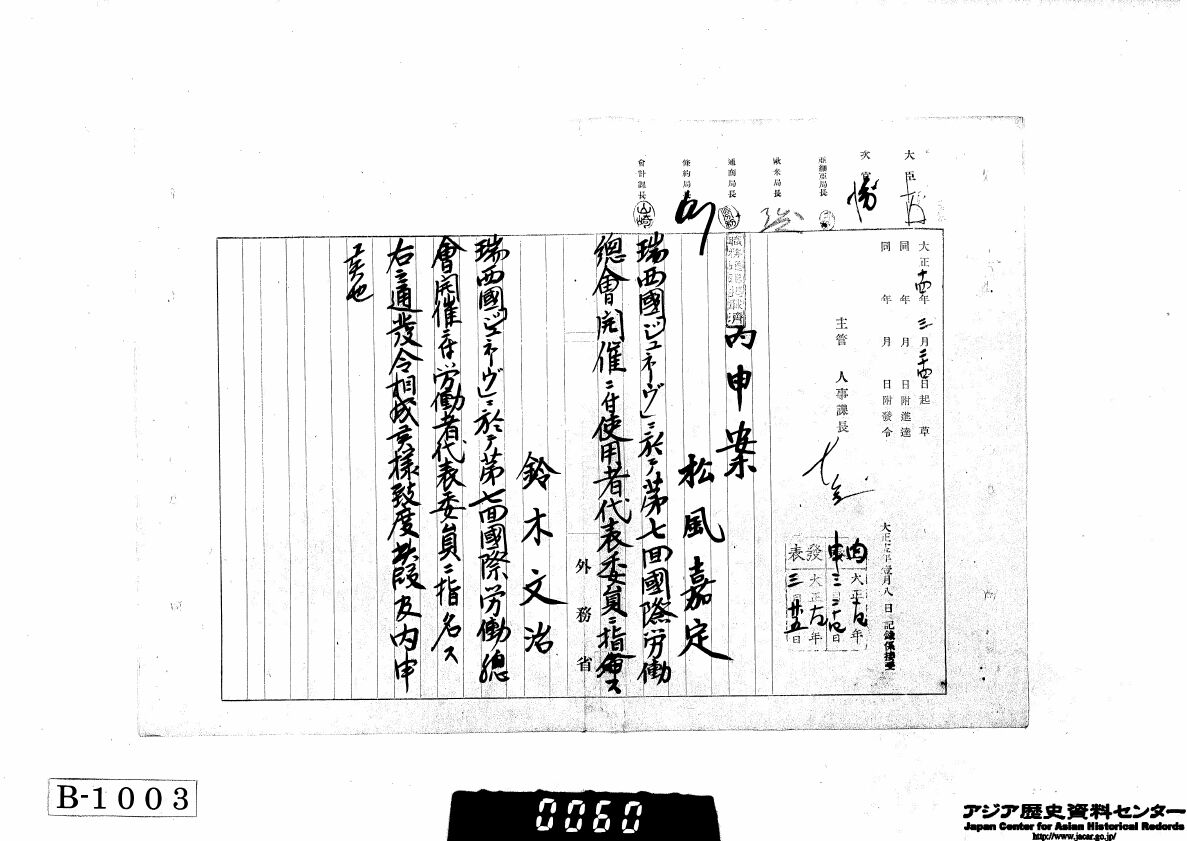 大臣
次官
亞細亞局長
歐米局長
通商局長
條約局長
會計課長
山崎
大正十四年三月二十四日起草
同年月日附進達
同年月日附發令
主管 人事課長
大正 年 月八日記錄係接受
內申 大正十四年三月二十四日
發表 大正十四年三月廿五日
內申案
松風嘉定
瑞西國「ジュネーヴ」ニ於テ第七回國際労働
總會開催ニ付使用者代表委員ニ指命ス
鈴木文治
瑞西國「ジュネーヴ」ニ於テ第七回國際労働總
會開催ニ付労働者代表委員ニ指名ス
右之通發令相成候樣致度此段及內申
候也
外務省
B-1003
0060
アジア歴史資料センター
Japan Center for Asian Historical Records
http://www.jacar.go.jp/